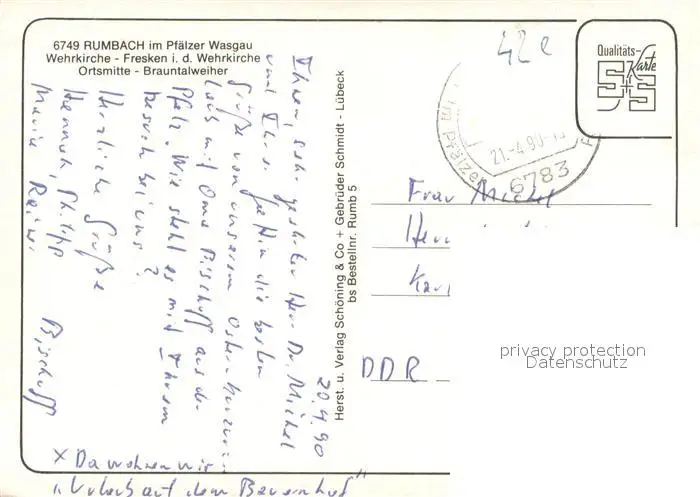 6749 RUMBACH im Pfälzer Wasgau
Wehrkirche - Fresken i. d. Wehrkirche
Ortsmitte - Brauntalweiher
42 e
Qualitäts-
Karte
S+S
21.-4.90-1
6783
Herst. u. Verlag Schöning & Co + Gebrüder Schmidt - Lübeck
bs Bestellnr. Rumb 5
20.4.90
Ihnen, sehr geehrter Herr Dr. Michel
und Ihrer die besten
Grüße von unserem
mit Oma Bischoff aus der
Pfalz. Wie steht es mit Ihrem
Besuch bei uns?
Herzliche Grüße
Hannah, Philipp
Maria
Bischoff
x Da wohnen wir
"Urlaub auf dem Bauernhof"
Frau Michel
Herr
Karl
DDR
privacy protection
Datenschutz